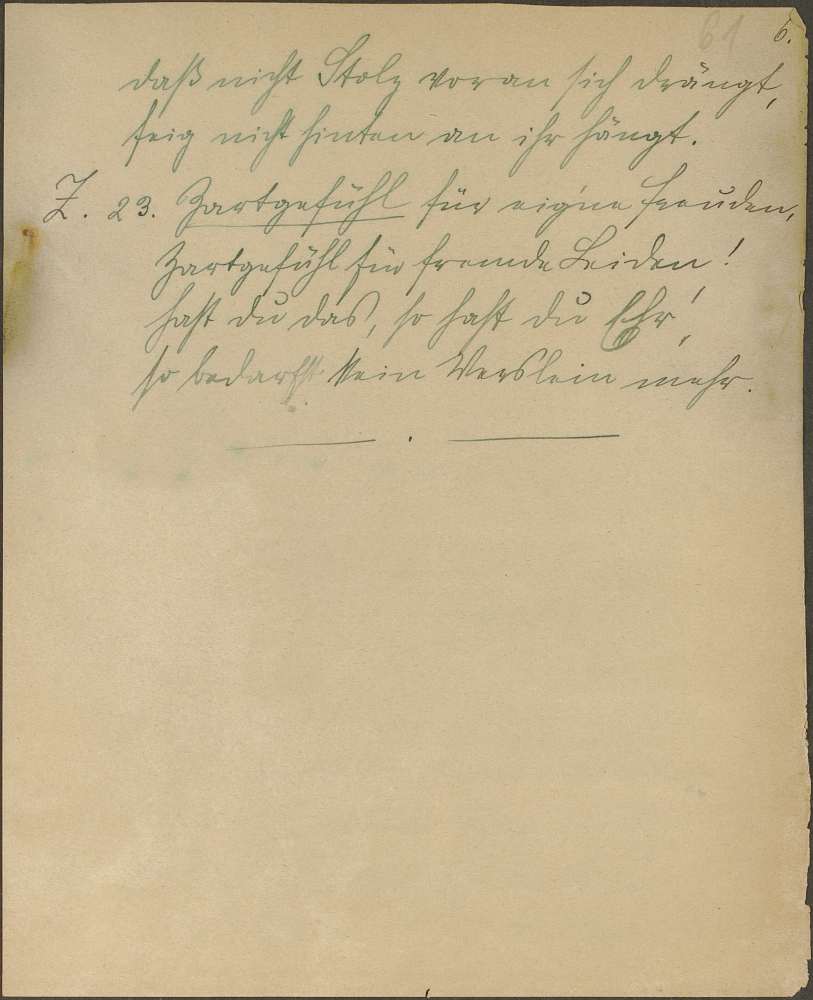 61 6.
daß nicht Stolz voran sich drängt,
feig nicht hinten an ihr hängt.
Z. 23. Zartgefühl für eig'ne Freuden,
Zartgefühl für fremde Leiden!
hast du das, so hast du Ehr',
so bedarfst kein Verslein mehr.